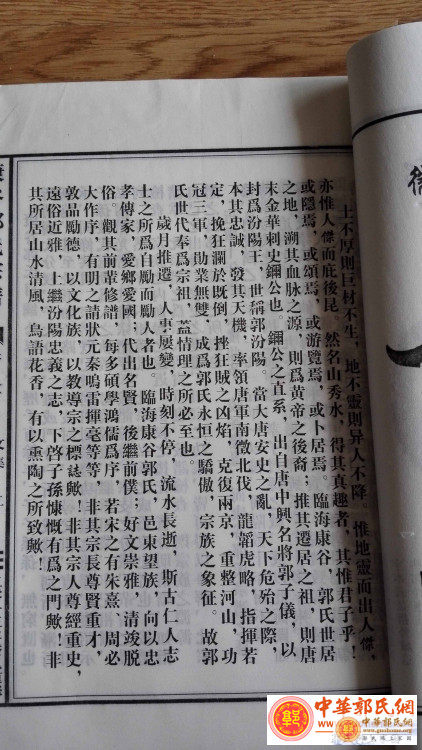 土不厚則巨材不生，地不靈則异人不降。惟地靈而出人傑，
亦惟人傑而庇後昆。然名山秀水，得其真趣者，其惟君子乎！
或隱焉，或頌焉，或游覽焉，或卜居焉。臨海康谷，郭氏世居
之地，溯其血脉之源，則爲黄帝之後裔；推其遷居之祖，則唐
末金華刺史鐦公也。鐦公之直系，出自唐中興名將郭子儀，以
封爲汾陽王，世稱郭汾陽。當大唐安史之亂，天下危殆之際，
本其忠誠，發其天機，率領唐軍南征北伐，龍韜虎略，指揮若
定，挽狂瀾於既倒，挫狂賊之凶焰，克復兩京，重整河山，功
冠三軍，勛業無雙，成爲郭氏永恒之驕傲，宗族之象征。故郭
氏世代奉爲宗祖，蓋情理之所必至也。
歲月推遷，人事屢變，時刻不停，流水長逝，斯古仁人志
士之所爲自勵而勵人者也。臨海康谷郭氏，邑東望族，向以忠
孝傳家，愛鄉愛國；代出名賢，後繼前僕；好文崇雅，清竣脱
俗。觀其前輩修譜，每多碩學鴻儒爲序，若宋之有朱熹、周必
大作序，有明之請狀元秦鳴雷揮毫等等，非其宗長尊賢重才，
敦品勵德，以文化族，以教導宗之標誌歟！非其宗人尊經重史，
遠俗近雅，上繼汾陽忠義之志，下啓子孫慷慨有爲之門歟！非
其所居山水清風，鳥語花香，有以熏陶之所致歟！
中華郭氏網
www.guoshi.com